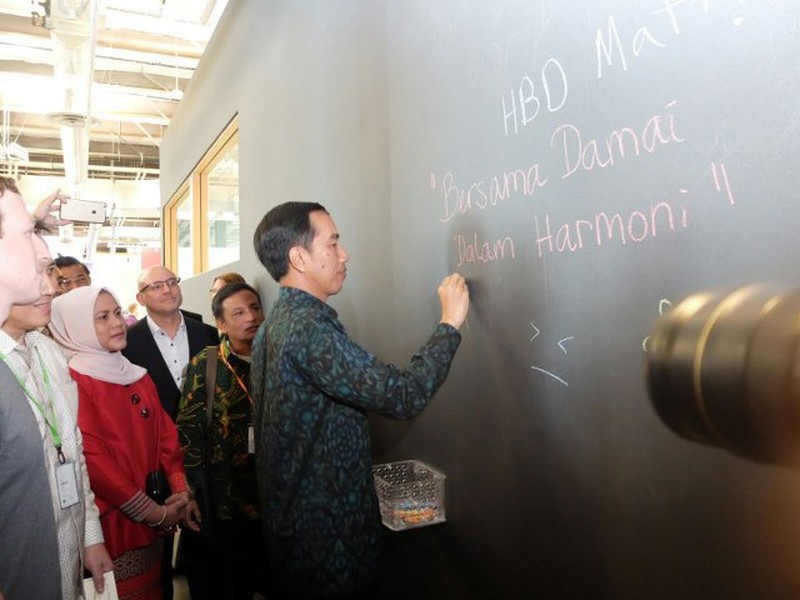 HBD
"Bersama Damai
Dalam Harmoni"